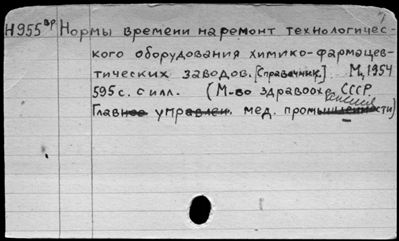 Н955вр Нормы времени на ремонт технологичес-
кого оборудования химико-фармацев-
тических заводов. [Справочник.] М, 1954
595 с. с илл. (М-во здравоохранения СССР.
Главное управлен. мед. промышленности)